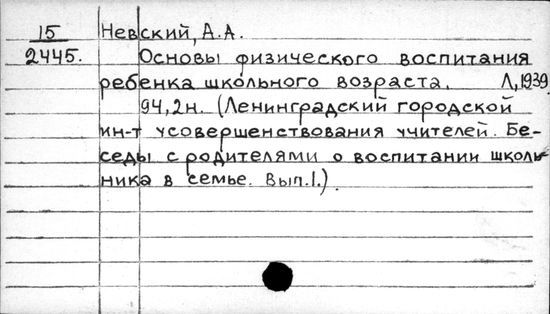 15 Невский, А.А.
2445. Основы физического воспитания
ребенка школьного возраста. Л, 1939
94, 2н. (Ленинградский городской
ин-т усовершенствования учителей. Бе-
седы с родителями о воспитании школь-
ника в семье. Вып. 1.)